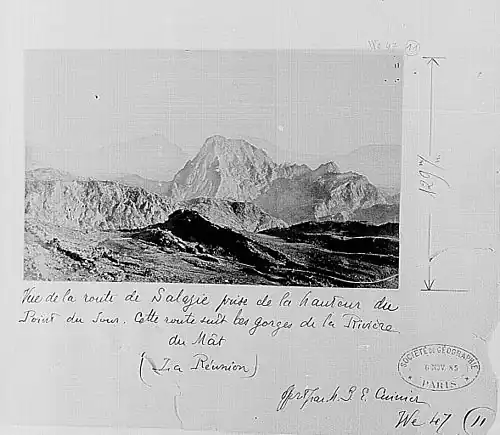 We 47 (11)
11
Vue de la route de Salazie prise de la hauteur du
Point du Jour. Cette route suit les gorges de la Rivière
du Mât
(La Réunion)
SOCIÉTÉ DE GÉOGRAPHIE
PARIS
We 47 (11)